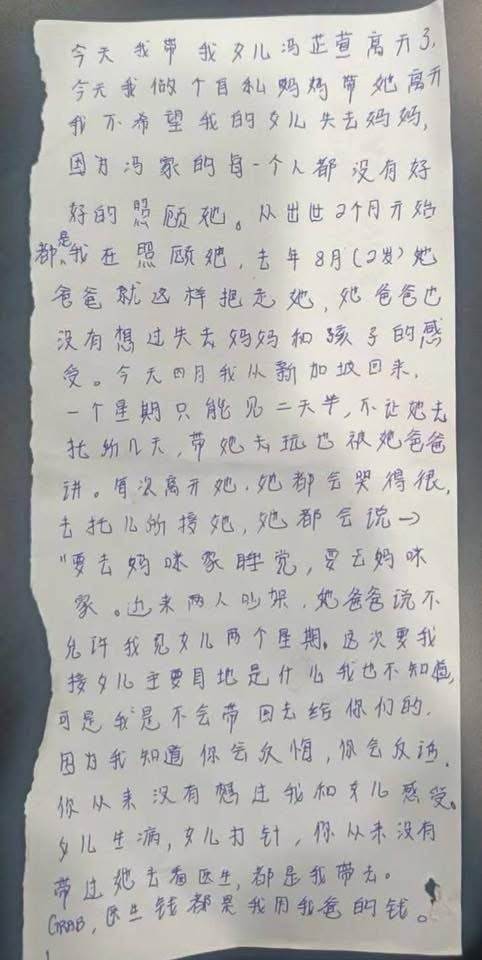 今天我带我女儿冯芷萱离开了,
今天我做个自私妈妈带她离开
我不希望我的女儿失去妈妈,
因为冯家的每一个人都没有好
好的照顾她。从出世2个月开始
都是我在照顾她,去年8月(2岁)她
爸爸就这样抱走她,她爸爸也
没有想过失去妈妈和孩子的感
受。今天四月我从新加坡回来,
一个星期只能见二天半,不让她去
托幼几天,带她去玩也被她爸爸
讲。每次离开她,她都会哭得很,
去托儿所接她,她都会说→
"要去妈咪家睡觉,要去妈咪
家。近来两人吵架,她爸爸说不
允许我见女儿两个星期。这次要我
接女儿主要目地是什么我也不知道,
可是我是不会带回去给你们的,
因为我知道你会反悔,你会反话,
你从来没有想过我和女儿感受。
女儿生病,女儿打针,你从来没有
带过她去看医生,都是我带去。
GRAB,医生钱都是我用我爸的钱。